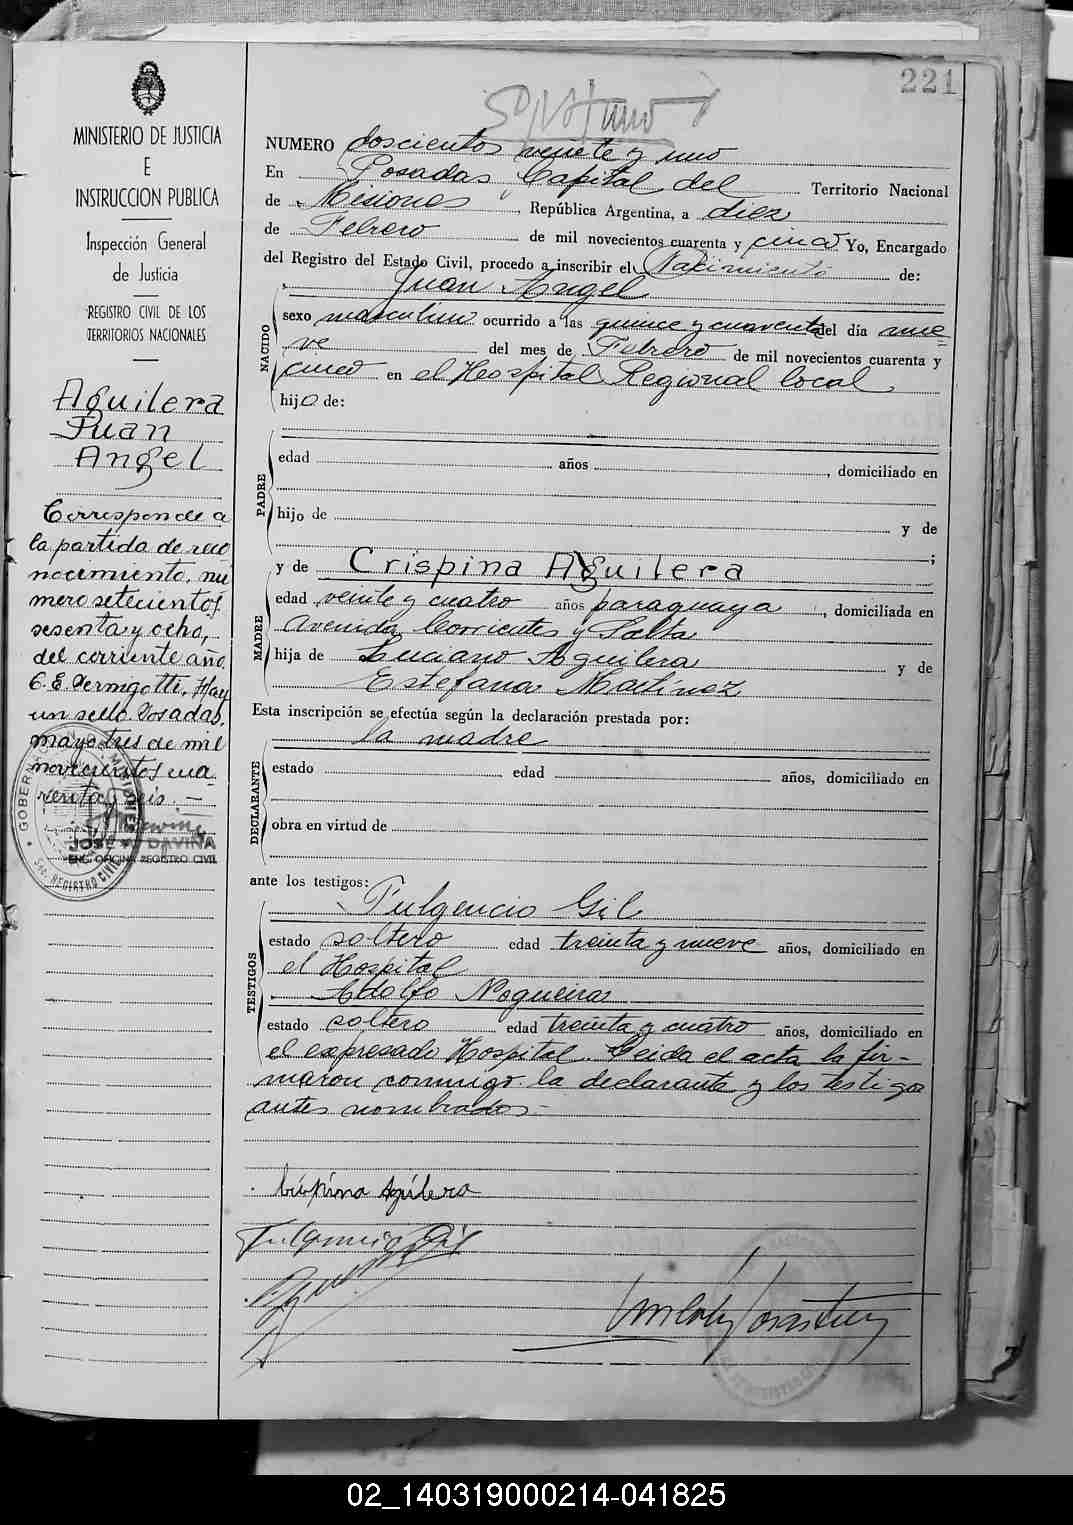 221
MINISTERIO DE JUSTICIA
E
INSTRUCCION PUBLICA
Inspección General
de Justicia
REGISTRO CIVIL DE LOS
TERRITORIOS NACIONALES
Aguilera
Juan
Angel
Corresponde a
la partida de reco
nocimiento, nú
mero setecientos
sesenta y ocho,
del corriente año.
C. E. Vernigotti. Hay
un sello. Posadas,
mayo tres de mil
novecientos cua
renta y seis.-
JOSE DAVIÑA
ENC. OFICINA REGISTRO CIVIL
NUMERO doscientos veinte y uno
En Posadas, Capital del Territorio Nacional
de Misiones, República Argentina, a diez
de Febrero de mil novecientos cuarenta y cinco Yo, Encargado
del Registro del Estado Civil, procedo a inscribir el Nacimiento de:
Juan Angel
NACIDO
sexo masculino ocurrido a las quince y cuarenta del día nue=
ve del mes de Febrero de mil novecientos cuarenta y
cinco en el Hospital Regional local
hijo de:
PADRE
edad años , domiciliado en
hijo de y de
;
y de Crispina Aguilera
MADRE
edad veinte y cuatro años paraguaya, domiciliada en
Avenida Corrientes y Salta
hija de Luciano Aguilera y de
Estefana Martínez
Esta inscripción se efectúa según la declaración prestada por:
la madre
DECLARANTE
estado edad años, domiciliado en
obra en virtud de
ante los testigos:
Fulgencio Gil
TESTIGOS
estado soltero edad treinta y nueve años, domiciliado en
el Hospital
Adolfo Nogueira
estado soltero edad treinta y cuatro años, domiciliado en
el expresado Hospital. Leida el acta la fir-
maron conmigo la declarante y los testigos
antes nombrados.-
Crispina Aguilera
Fulgencio Gil
02_140319000214-041825